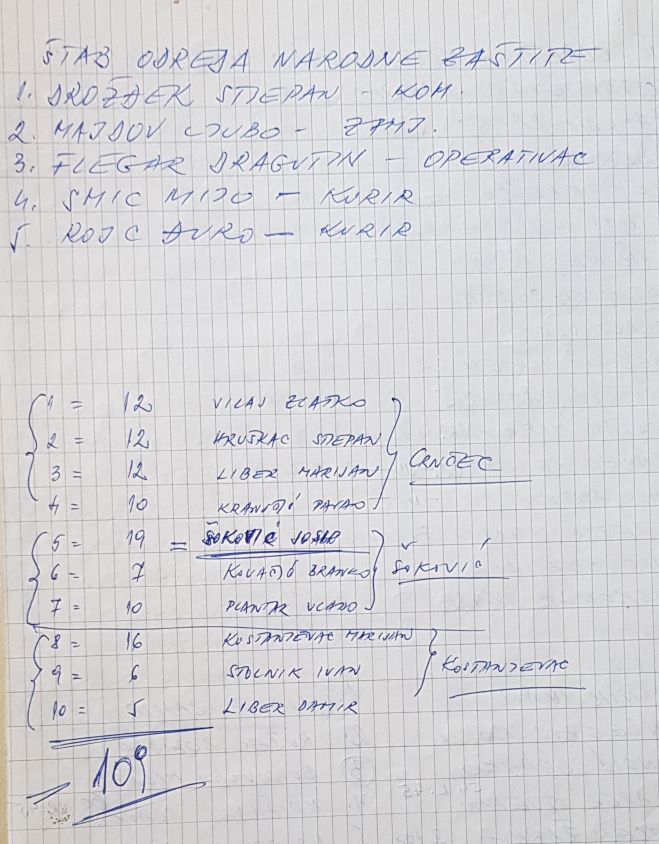 ŠTAB ODREDA NARODNE ZAŠTITE
1. DROŽĐEK STJEPAN - KOM.
2. MAJDOV LJUBO - ZAMJ.
3. FLEGAR DRAGUTIN - OPERATIVAC
4. SMIC MIJO - KURIR
5. ROJC ĐURO - KURIR
1 = 12 VILAJ ZLATKO
2 = 12 HRUŠKAC STEPAN
3 = 12 LIBER MARIJAN CRNČEC
4 = 10 KRANJČIĆ PAVAO
5 = 19 = ŠOKOVIĆ JOSIP
6 = 7 KOVAČIĆ BRANKO ŠOKOVIĆ
7 = 10 PLANTAK VLADO
8 = 16 KOSTANJEVAC MARIJAN
9 = 6 STOLNIK IVAN KOSTANJEVAC
10 = 5 LIBER DAMIR
= 109